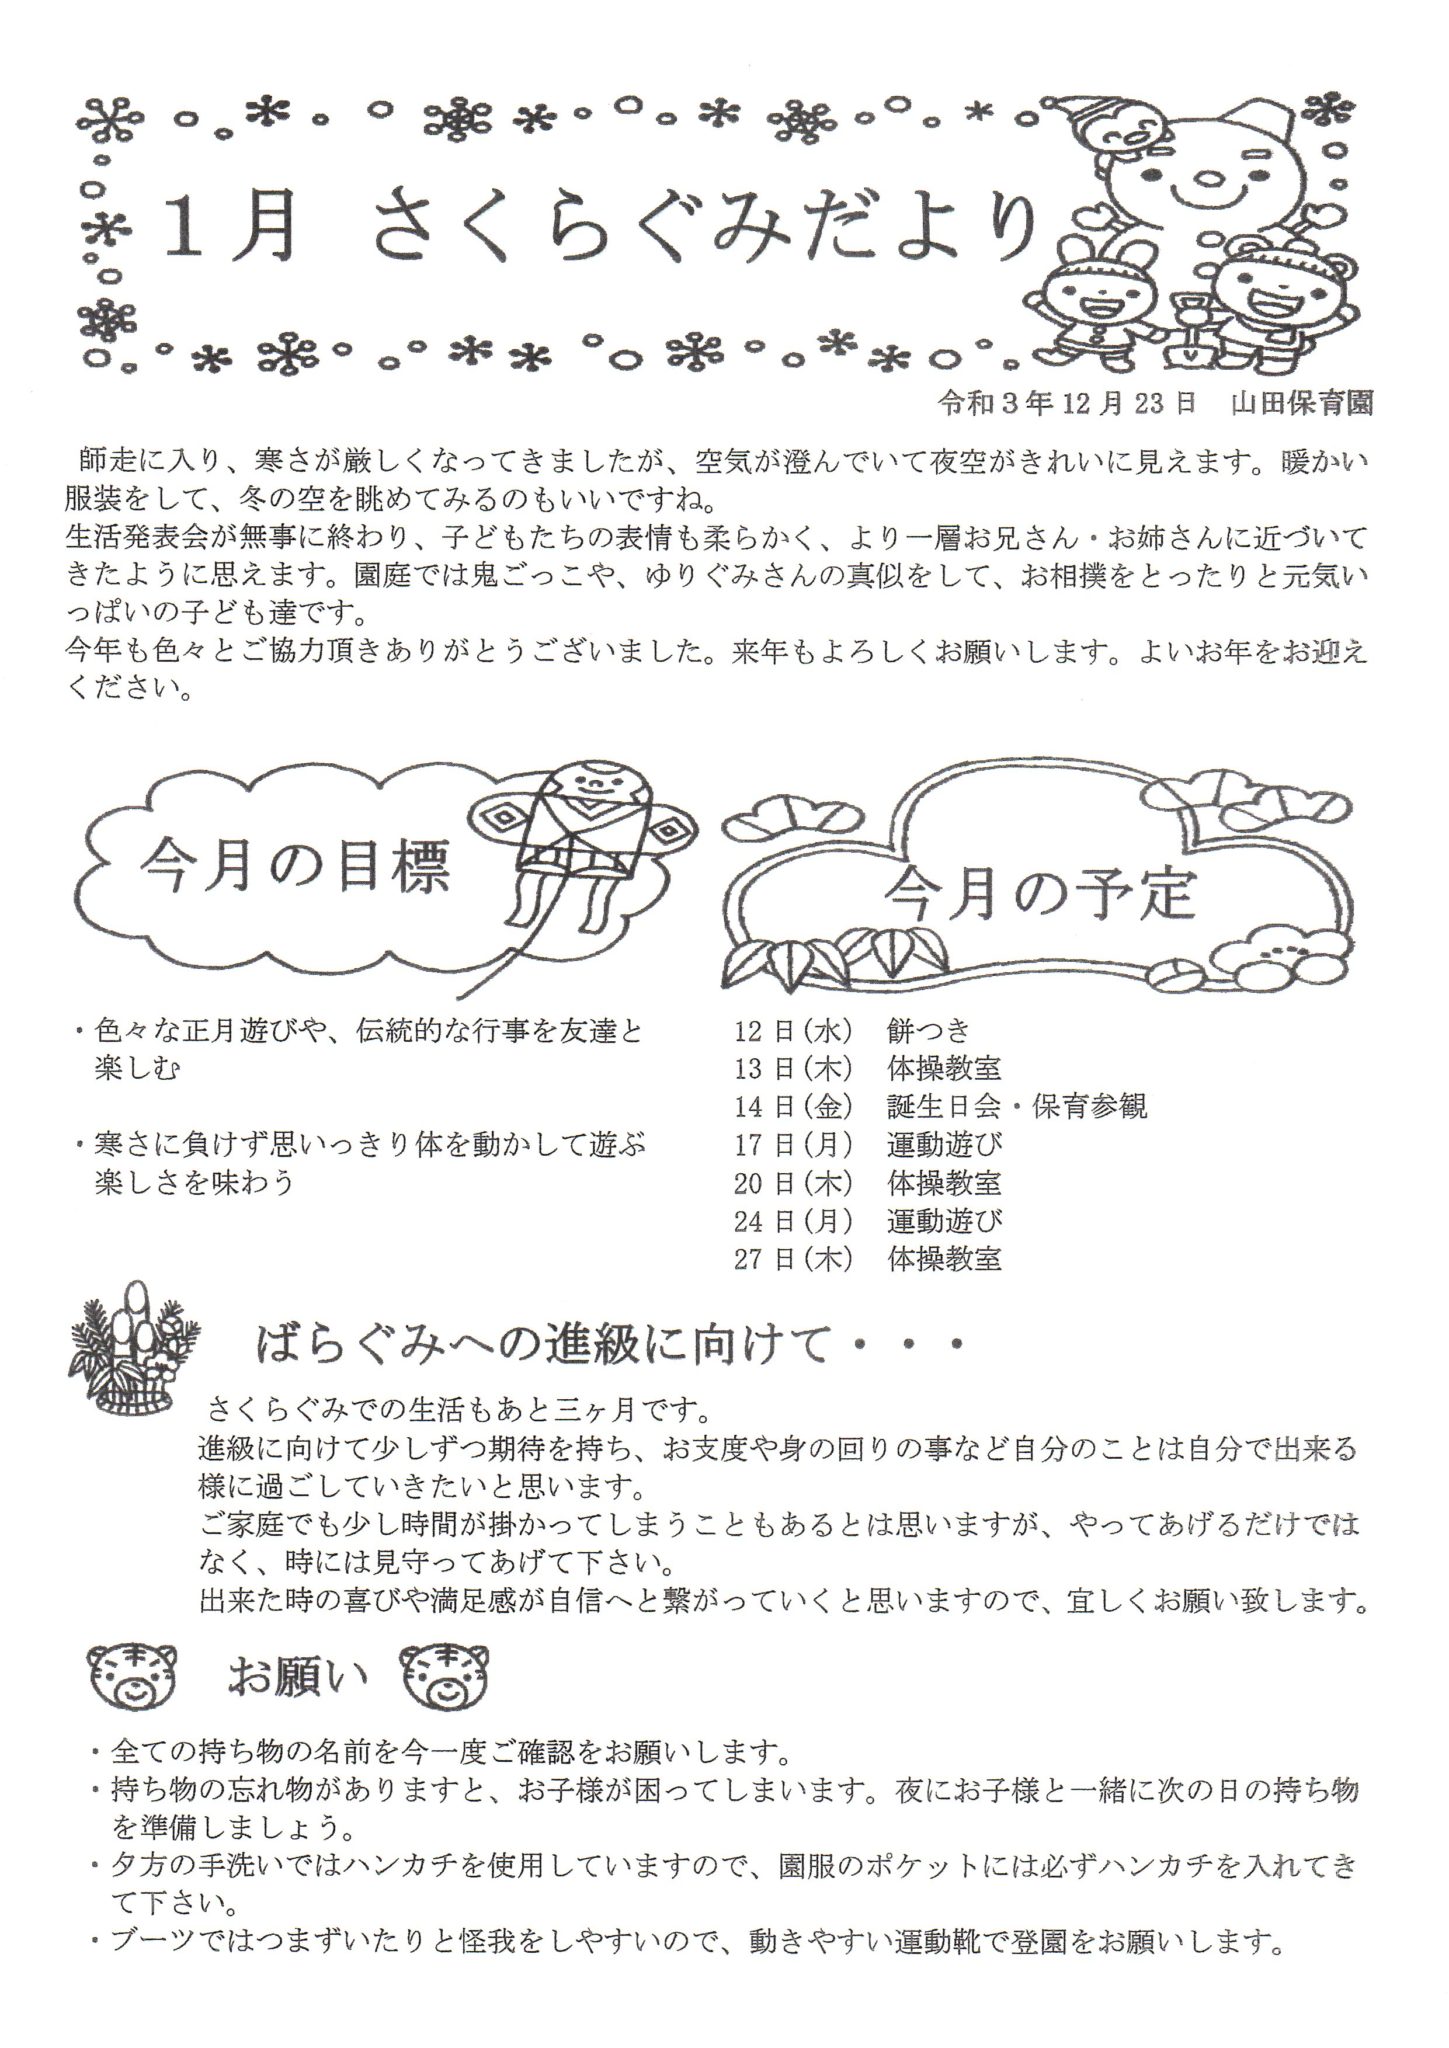 1月 さくらぐみだより
令和3年12月23日 山田保育園
師走に入り、寒さが厳しくなってきましたが、空気が澄んでいて夜空がきれいに見えます。暖かい
服装をして、冬の空を眺めてみるのもいいですね。
生活発表会が無事に終わり、子どもたちの表情も柔らかく、より一層お兄さん・お姉さんに近づいて
きたように思えます。園庭では鬼ごっこや、ゆりぐみさんの真似をして、お相撲をとったりと元気い
っぱいの子ども達です。
今年も色々とご協力頂きありがとうございました。来年もよろしくお願いします。よいお年をお迎え
ください。
今月の目標
・色々な正月遊びや、伝統的な行事を友達と
楽しむ
・寒さに負けず思いっきり体を動かして遊ぶ
楽しさを味わう
今月の予定
12日(水) 餅つき
13日(木) 体操教室
14日(金) 誕生日会・保育参観
17日(月) 運動遊び
20日(木) 体操教室
24日(月) 運動遊び
27日(木) 体操教室
ばらぐみへの進級に向けて・・・
さくらぐみでの生活もあと三ヶ月です。
進級に向けて少しずつ期待を持ち、お支度や身の回りの事など自分のことは自分で出来る
様に過ごしていきたいと思います。
ご家庭でも少し時間が掛かってしまうこともあるとは思いますが、やってあげるだけでは
なく、時には見守ってあげて下さい。
出来た時の喜びや満足感が自信へと繋がっていくと思いますので、宜しくお願い致します。
お願い
・全ての持ち物の名前を今一度ご確認をお願いします。
・持ち物の忘れ物がありますと、お子様が困ってしまいます。夜にお子様と一緒に次の日の持ち物
を準備しましょう。
・夕方の手洗いではハンカチを使用していますので、園服のポケットには必ずハンカチを入れてき
て下さい。
・ブーツではつまずいたりと怪我をしやすいので、動きやすい運動靴で登園をお願いします。